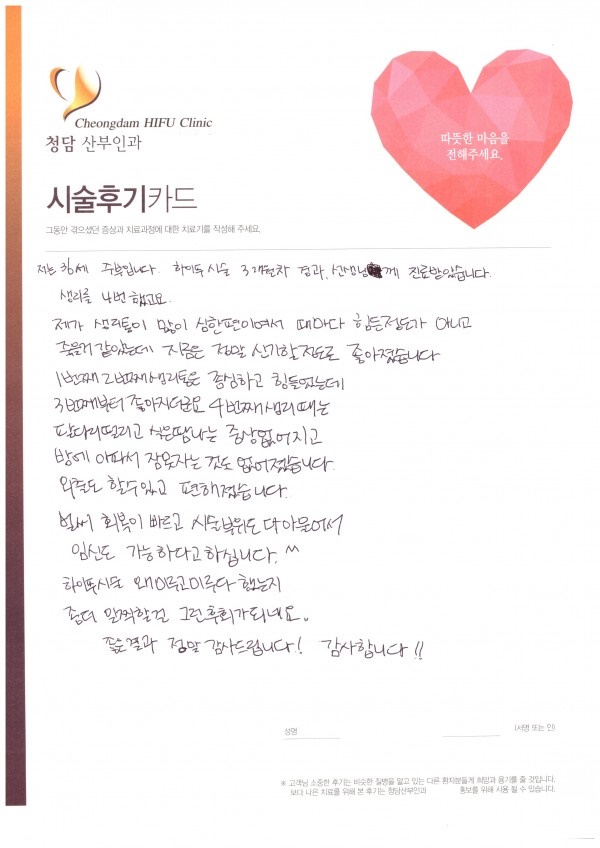 Cheongdam HIFU Clinic
청담 산부인과
따뜻한 마음을
전해주세요.
시술후기카드
그동안 겪으셨던 증상과 치료과정에 대한 치료기를 작성해 주세요.
저는 36세 주부입니다. 하이푸시술 3개월차 경과, 선생님께 진료받았습니다.
생리를 4번 했고요.
제가 생리통이 많이 심한편이여서 때마다 힘든정도가 아니고
죽을거 같았는데 지금은 정말 신기할정도로 좋아졌습니다
1번째 2번째 생리통은 좀심하고 힘들었는데
3번째부터 좋아지더군요 4번째 생리때는
팔다리떨리고 식은땀나는 증상없어지고
밤에 아파서 잠못자는 것도 없어졌습니다.
외출도 할수있고 편해졌습니다.
벌써 회복이 빠르고 시술부위도 다아물어서
임신도 가능하다고하십니다. ^^
하이푸시술 왜미루고미루다 했는지
좀더 일찍할걸 그런후회가되네요.
좋은결과 정말 감사드립니다! 감사합니다!!
성명
(서명 또는 인)
※ 고객님 소중한 후기는 비슷한 질병을 앓고 있는 다른 환자분들게 희망과 용기를 줄 것입니다.
보다 나은 치료를 위해 본 후기는 청담산부인과 홍보를 위해 사용 될 수 있습니다.